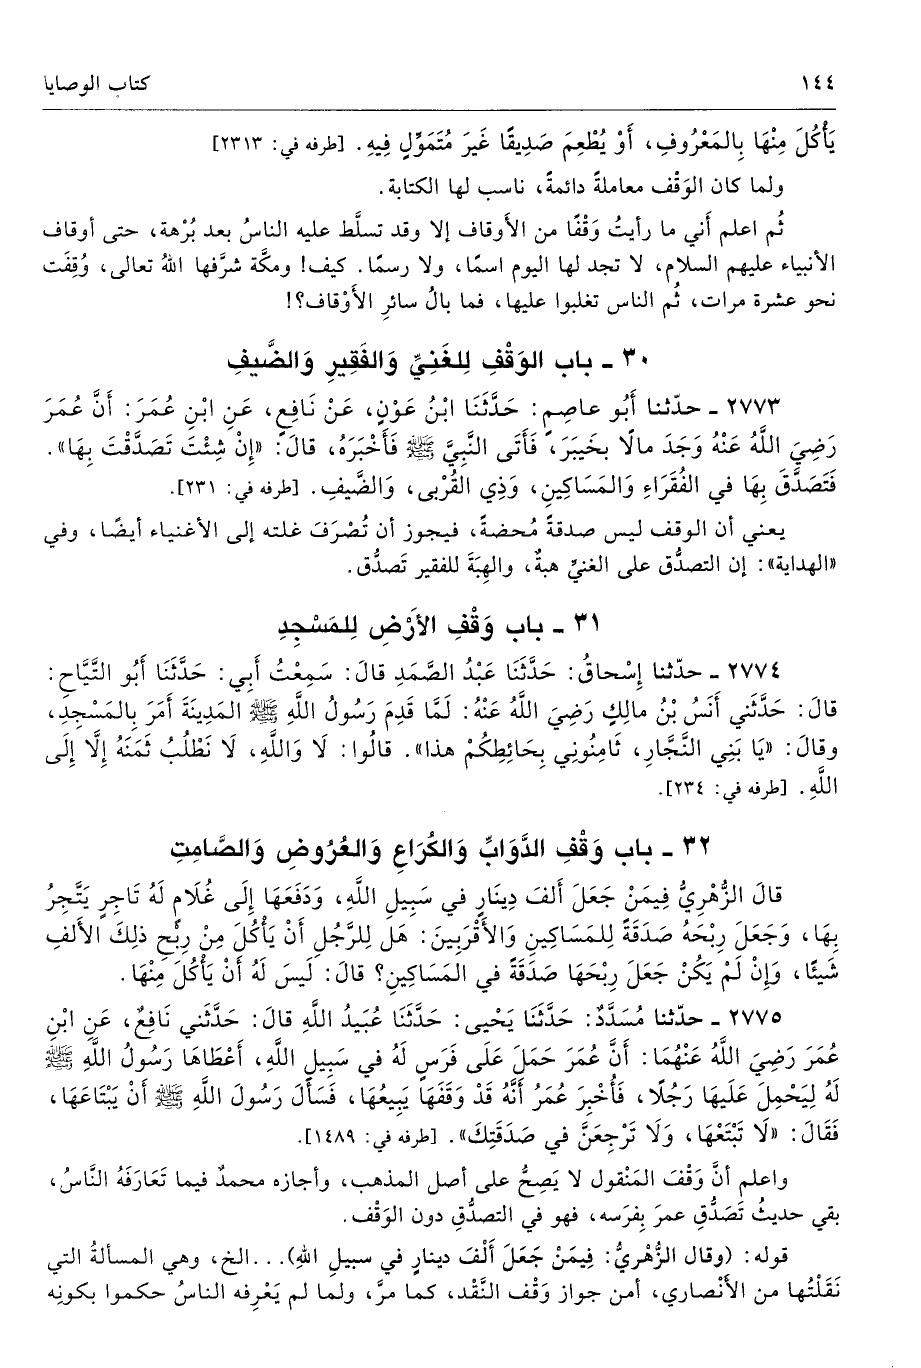 ١٤٤ كتاب الوصايا
يَأْكُلَ مِنْهَا بِالمَعْرُوفِ، أَوْ يُطْعِمَ صَدِيقًا غَيرَ مُتَمَوِّلٍ فِيهِ. [طرفه في: ٢٣١٣]
ولما كان الوَقْف معاملةً دائمةً، ناسب لها الكتابة.
ثُم اعلم أَني ما رأيتُ وَقْفًا من الأَوقاف إلا وقد تسلَّط عليه الناسُ بعد بُرْهة، حتى أوقاف
الأنبياء عليهم السلام، لا تجد لها اليوم اسمًا، ولا رسمًا. كيف! ومكَّة شرَّفها اللهُ تعالى، وُقِفَت
نحو عشرة مرات، ثُم الناس تغلبوا عليها، فما بالُ سائرِ الأَوْقاف؟!
٣٠ - باب الوَقْفِ لِلغَنِيِّ وَالفَقِيرِ وَالضَّيفِ
٢٧٧٣ - حدّثنا أَبُو عاصِمٍ: حَدَّثَنَا ابْنُ عَوْنٍ، عَنْ نَافِعٍ، عَنِ ابْنِ عُمَرَ: أَنَّ عُمَرَ
رَضِيَ اللَّهُ عَنْهُ وَجَدَ مالًا بِخَيبَرَ، فَأَتَى النَّبِيَّ ﷺ فَأَخْبَرَهُ، قالَ: «إِنْ شِئْتَ تَصَدَّقْتَ بِهَا».
فَتَصَدَّقَ بِهَا في الفُقَرَاءِ وَالمَسَاكِينِ، وَذِي القُرْبى، وَالضَّيفِ. [طرفه في: ٢٣١].
يعني أن الوقف ليس صدقةً مُحضةً، فيجوز أن تُصْرَفَ غلته إلى الأغنياء أيضًا، وفي
«الهداية»: إن التصدُّق على الغنيِّ هبةٌ، والهِبَةَ للفقير تَصدُّق.
٣١ - باب وَقْفِ الأَرْضِ لِلمَسْجِدِ
٢٧٧٤ - حدّثنا إِسْحاقُ: حَدَّثَنَا عَبْدُ الصَّمَدِ قالَ: سَمِعْتُ أَبِي: حَدَّثَنَا أَبُو التَّيَّاحِ:
قالَ: حَدَّثَنِي أَنَسُ بْنُ مالِكٍ رَضِيَ اللَّهُ عَنْهُ: لَمَّا قَدِمَ رَسُولُ اللَّهِ ﷺ المَدِينَةَ أَمَرَ بِالمَسْجِدِ،
وقالَ: «يَا بَنِي النَّجَّارِ، ثَامِنُونِي بِحَائِطِكُمْ هذا». قالُوا: لَا وَاللَّهِ، لَا نَطْلُبُ ثَمَنَهُ إِلَّا إِلَى
اللَّهِ. [طرفه في: ٢٣٤].
٣٢ - باب وَقْفِ الدَّوَابِّ وَالكُرَاعِ وَالعُرُوضِ وَالصَّامِتِ
قالَ الزُّهْرِيُّ فِيمَنْ جَعَلَ أَلفَ دِينَارٍ في سَبِيلِ اللَّهِ، وَدَفَعَهَا إِلَى غُلَامٍ لَهُ تَاجِرٍ يَتَّجِرُ
بِهَا، وَجَعَلَ رِبْحَهُ صَدَقَةً لِلمَسَاكِينِ وَالأَقْرَبِينَ: هَل لِلرَّجُلِ أَنْ يَأْكُلَ مِنْ رِبْحِ ذلِكَ الأَلفِ
شَيئًا، وَإِنْ لَمْ يَكُنْ جَعَلَ رِبْحَهَا صَدَقَةً في المَسَاكِينِ؟ قالَ: لَيسَ لَهُ أَنْ يَأْكُلَ مِنْهَا.
٢٧٧٥ - حدّثنا مُسَدَّدٌ: حَدَّثَنَا يَحْيى: حَدَّثَنَا عُبَيدُ اللَّهِ قالَ: حَدَّثَنِي نَافِعٌ، عَنِ ابْنِ
عُمَرَ رَضِيَ اللَّهُ عَنْهُمَا: أَنَّ عُمَرَ حَمَلَ عَلَى فَرَسٍ لَهُ في سَبِيلِ اللَّهِ، أَعْطَاهَا رَسُولُ اللَّهِ ﷺ
لَهُ لِيَحْمِلَ عَلَيهَا رَجُلًا، فَأُخْبِرَ عُمَرُ أَنَّهُ قَدْ وَقَفَهَا يَبِيعُهَا، فَسَأَلَ رَسُولَ اللَّهِ ﷺ أَنْ يَبْتَاعَهَا،
فَقَالَ: «لَا تَبْتَعْهَا، وَلَا تَرْجِعَنَّ في صَدَقَتِكَ». [طرفه في: ١٤٨٩].
واعلم أنَّ وَقْفَ المَنْقول لا يَصِحُّ على أصل المذهب، وأجازه محمدٌ فيما تَعَارَفَهُ النَّاسُ،
بقي حديثُ تَصَدُّقِ عمرَ بِفَرسه، فهو في التصدُّقِ دون الوَقْف.
قوله: (وقال الزُّهْريُّ: فِيمَنْ جَعَلَ أَلْفَ دينارٍ في سبيلِ اللهِ)...الخ، وهي المسألةُ التي
نَقَلْتُها من الأَنْصاري، أمن جواز وَقْف النَّقْد، كما مرَّ، ولما لم يَعْرِفه الناسُ حكموا بكونِه